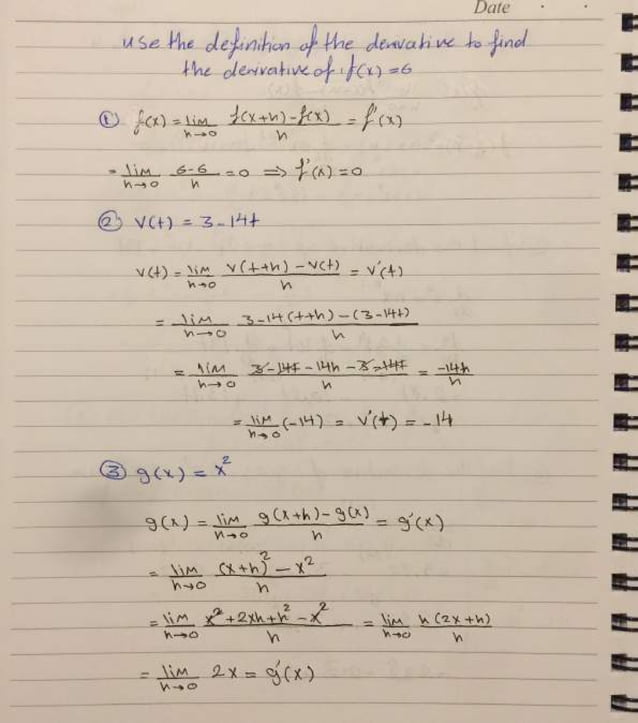 Date
Use the definition of the derivative to find
the derivative of f(x) = 6
① f(x) = lim h→0 f(x+h) - f(x) / h = f'(x)
= lim h→0 6-6 / h = 0 ⇒ f'(x) = 0
② V(t) = 3 - 14t
V(t) = lim h→0 V(t+h) - V(t) / h = V'(t)
= lim h→0 3-14(t+h) - (3-14t) / h
= lim h→0 3-14t - 14h - 3 = 14t / h = -14h / h
= lim h→0 (-14) = V'(t) = -14
③ g(x) = x²
g(x) = lim h→0 g(x+h) - g(x) / h = g'(x)
= lim h→0 (x+h)² - x² / h
= lim h→0 x² + 2xh + h² - x² / h = lim h→0 h(2x+h) / h
= lim h→0 2x = g'(x)